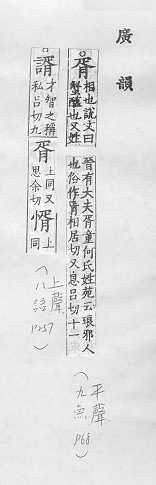 廣韻
○胥
相也說文曰
蟹醢也又姓
晉有大夫胥童何氏姓苑云琅邪人
也俗作相居切又息呂切十一
(平聲
九魚
P68)
○諝
才智之稱
私呂切九
胥
上同又
思余切
㥠
上
同
(上聲
八語
P257)